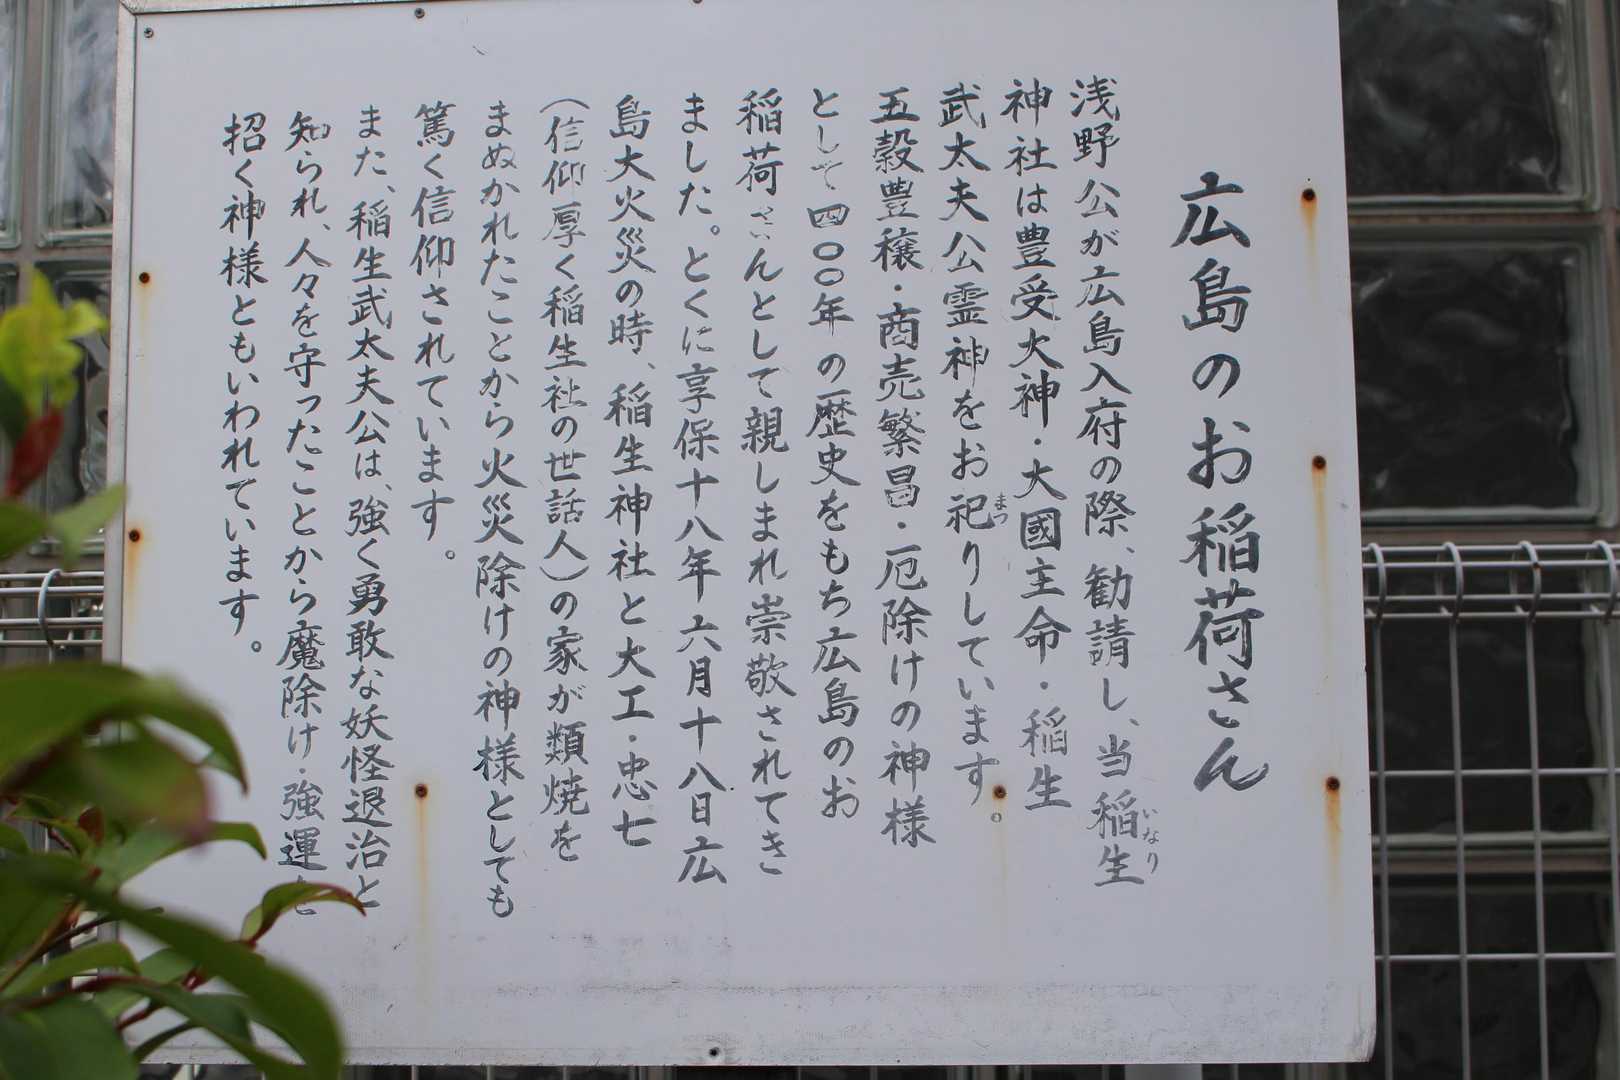 広島のお稲荷さん
浅野公が広島入府の際、勧請し、当稲生
いなり
神社は豊受大神・大國主命・稲生
武太夫公霊神をお祀りしています。
まつ
五穀豊穣・商売繁昌・厄除けの神様
として四〇〇年の歴史をもち広島のお
稲荷さんとして親しまれ崇敬されてき
ました。とくに享保十八年六月十八日広
島大火災の時、稲生神社と大工・忠七
(信仰厚く稲生社の世話人)の家が類焼を
まぬかれたことから火災除けの神様としても
篤く信仰されています。
また、稲生武太夫公は、強く勇敢な妖怪退治と
知られ、人々を守ったことから魔除け・強運を
招く神様ともいわれています。